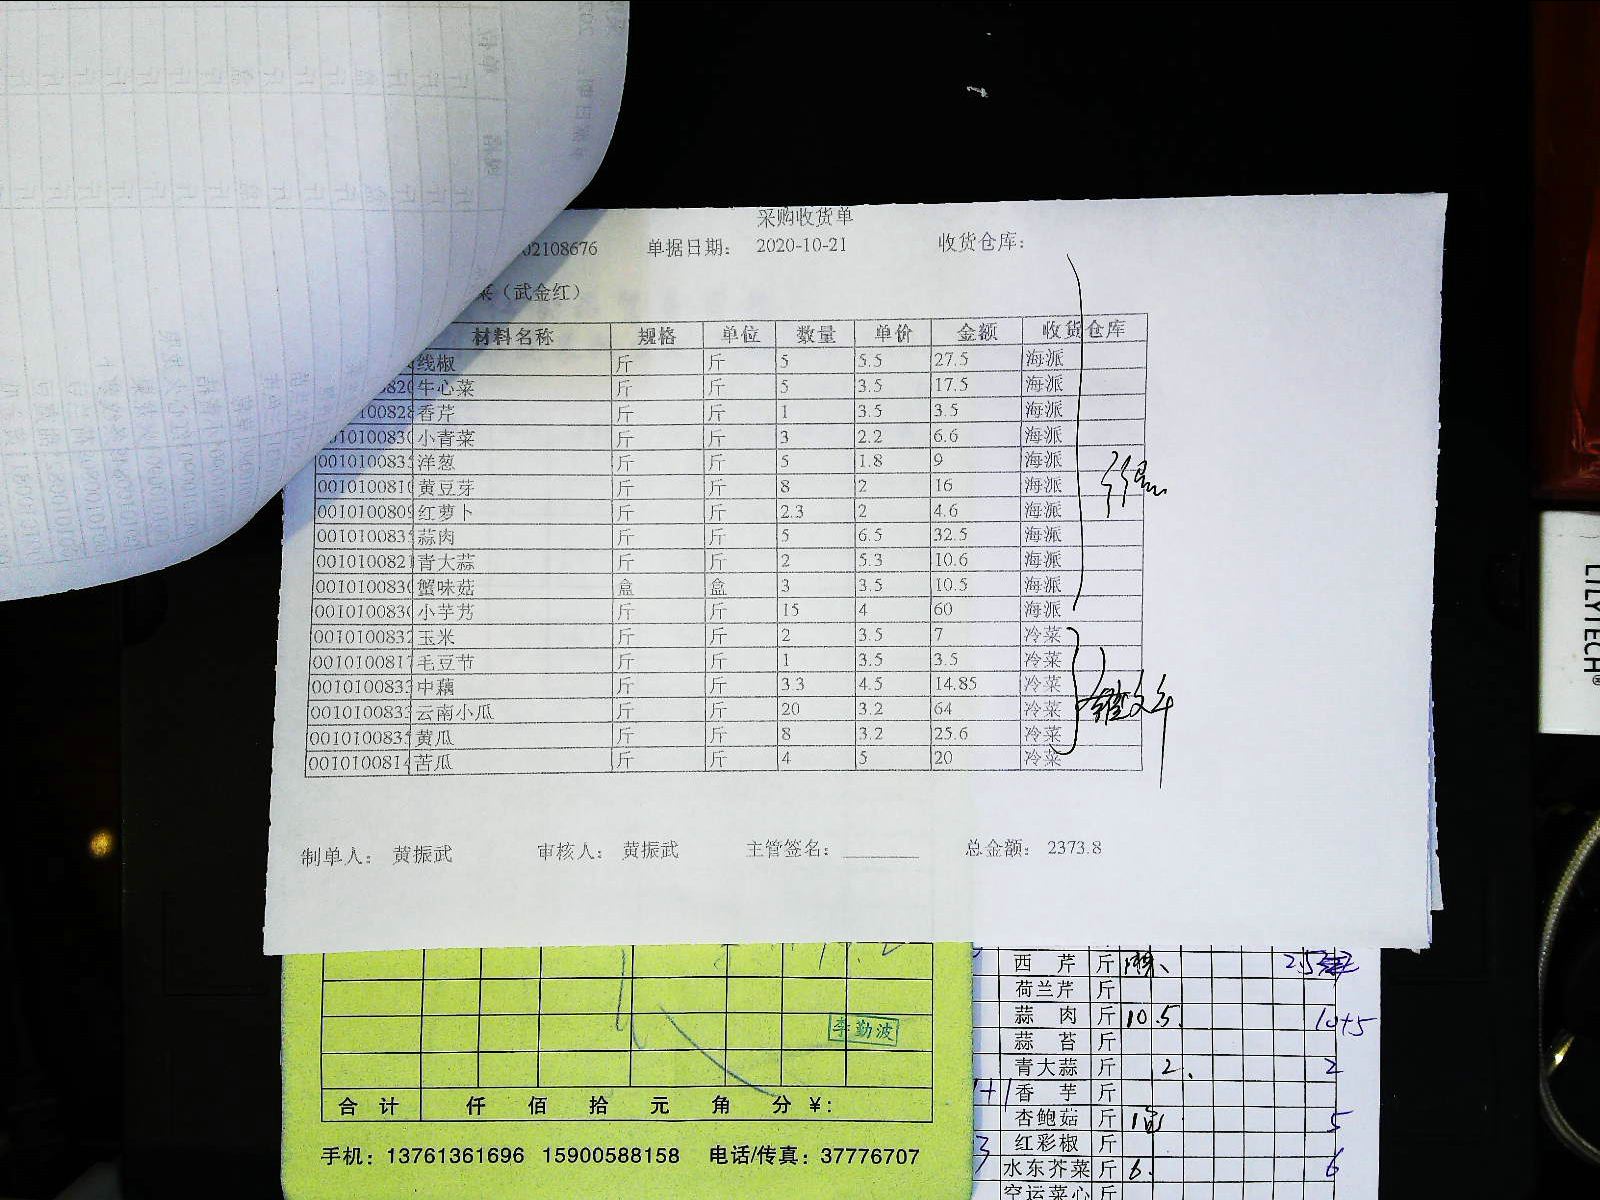 采购收货单
02108676 单据日期： 2020-10-21 收货仓库：
菜（武金红）
材料名称 规格 单位 数量 单价 金额 收货仓库
线椒 斤 斤 5 5.5 27.5 海派
820 牛心菜 斤 斤 5 3.5 17.5 海派
0100828 香芹 斤 斤 1 3.5 3.5 海派
010100830 小青菜 斤 斤 3 2.2 6.6 海派
0010100835 洋葱 斤 斤 5 1.8 9 海派
0010100810 黄豆芽 斤 斤 8 2 16 海派
0010100809 红萝卜 斤 斤 2.3 2 4.6 海派
0010100835 蒜肉 斤 斤 5 6.5 32.5 海派
0010100821 青大蒜 斤 斤 2 5.3 10.6 海派
0010100830 蟹味菇 盒 盒 3 3.5 10.5 海派
0010100830 小芋艿 斤 斤 15 4 60 海派
0010100832 玉米 斤 斤 2 3.5 7 冷菜
0010100817 毛豆节 斤 斤 1 3.5 3.5 冷菜
0010100833 中藕 斤 斤 3.3 4.5 14.85 冷菜
0010100833 云南小瓜 斤 斤 20 3.2 64 冷菜
0010100835 黄瓜 斤 斤 8 3.2 25.6 冷菜
0010100814 苦瓜 斤 斤 4 5 20 冷菜
制单人： 黄振武 审核人： 黄振武 主管签名： 总金额： 2373.8
李勤波
合计 仟 佰 拾 元 角 分 ¥：
手机：13761361696 15900588158 电话/传真：37776707
西芹 斤
荷兰芹 斤
蒜肉 斤 10.5. 10+5
蒜苔 斤
青大蒜 斤 2. 2
香芋 斤
杏鲍菇 斤 5
红彩椒 斤
水东芥菜 斤 6. 6
空运菜心 斤
LILYTECH®